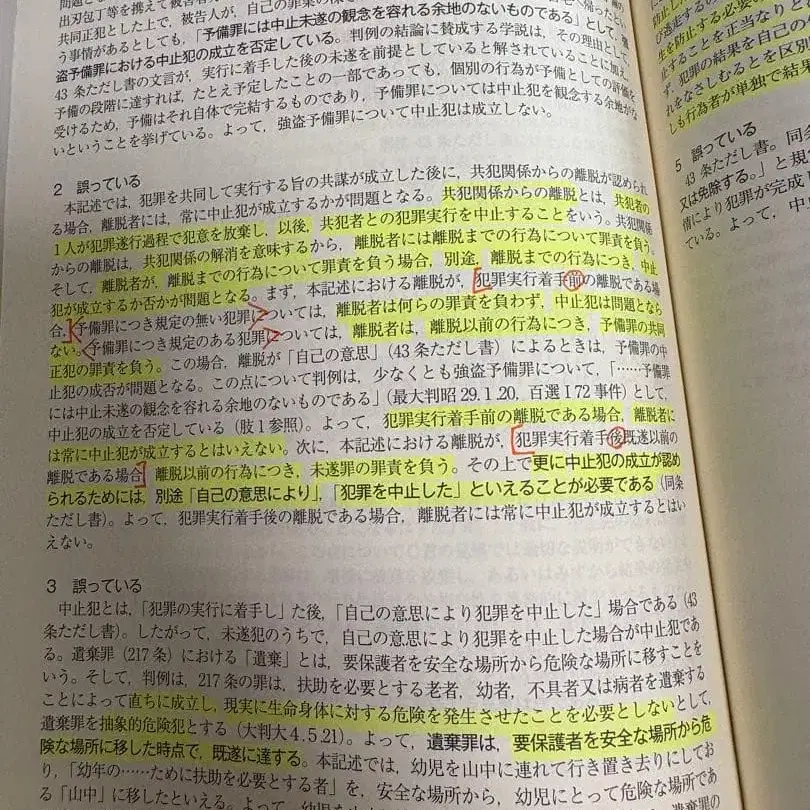 出刃包丁等を携えて被害者
共同正犯とした上で，被告人が，自己の
う事情があるとしても，「予備罪には中止未遂の観念を容れる余地のないものである」として，強
盗予備罪における中止犯の成立を否定している。判例の結論に賛成する学説は，その理由として
43 条ただし書の文言が，実行に着手した後の未遂を前提としていると解されていることに加え，
予備の段階に達すれば，たとえ予定したことの一部であっても，個別の行為が予備としての評価を
受けるため，予備はそれ自体で完結するものであり，予備罪については中止犯を観念する余地がな
いということを挙げている。よって，強盗予備罪について中止犯は成立しない。
2 誤っている
本記述では，犯罪を共同して実行する旨の共謀が成立した後に，共犯関係からの離脱が認められ
る場合，離脱者には，常に中止犯が成立するかが問題となる。共犯関係からの離脱とは，共犯者の
1人が犯罪遂行過程で犯意を放棄し，以後，共犯者との犯罪実行を中止することをいう。共犯関係
からの離脱は，共犯関係の解消を意味するから，離脱者には離脱までの行為について罪責を負う。
そして，離脱者が，離脱までの行為について罪責を負う場合，別途，離脱までの行為につき，中止
犯が成立するか否かが問題となる。まず，本記述における離脱が，犯罪実行着手前の離脱である場
合，予備罪につき規定の無い犯罪については，離脱者は何らの罪責を負わず，中止犯は問題となら
ない。予備罪につき規定のある犯罪については，離脱者は，離脱以前の行為につき，予備罪の共同
正犯の罪責を負う。この場合，離脱が「自己の意思」（43 条ただし書）によるときは，予備罪の中
止犯の成否が問題となる。この点について判例は，少なくとも強盗予備罪について，「……予備罪
には中止未遂の観念を容れる余地のないものである」（最大判昭 29.1.20，百選Ⅰ72 事件）として，
中止犯の成立を否定している（肢1参照）。よって，犯罪実行着手前の離脱である場合，離脱者に
は常に中止犯が成立するとはいえない。次に，本記述における離脱が，犯罪実行着手後既遂以前の
離脱である場合，離脱以前の行為につき，未遂罪の罪責を負う。その上で更に中止犯の成立が認め
られるためには，別途「自己の意思により」，「犯罪を中止した」といえることが必要である（同条
ただし書）。よって，犯罪実行着手後の離脱である場合，離脱者には常に中止犯が成立するとはい
えない。
3 誤っている
中止犯とは，「犯罪の実行に着手し」た後，「自己の意思により犯罪を中止した」場合である（43
条ただし書）。したがって，未遂犯のうちで，自己の意思により犯罪を中止した場合が中止犯であ
る。遺棄罪（217 条）における「遺棄」とは，要保護者を安全な場所から危険な場所に移すことを
いう。そして，判例は，217 条の罪は，扶助を必要とする老者，幼者，不具者又は病者を遺棄する
ことによって直ちに成立し，現実に生命身体に対する危険を発生させたことを必要としないとして，
遺棄罪を抽象的危険犯とする（大判大4.5.21）。よって，遺棄罪は，要保護者を安全な場所から危
険な場所に移した時点で，既遂に達する。本記述では，幼児を山中に連れて行き置き去りにしてお
り，「幼年の……ために扶助を必要とする者」を，安全な場所から，幼児にとって危険な場所であ
る「山中」に移したといえる。よって
び逃走するの
生を防止する必要の
止することを正当なりと
ず，犯罪の結果を自己の
れをなさしむるとを区別
しも行為者が単独で結果
5 誤っている
43 条ただし書。同条
又は免除する。」と規定
情により犯罪が完成し
ている。よって，中